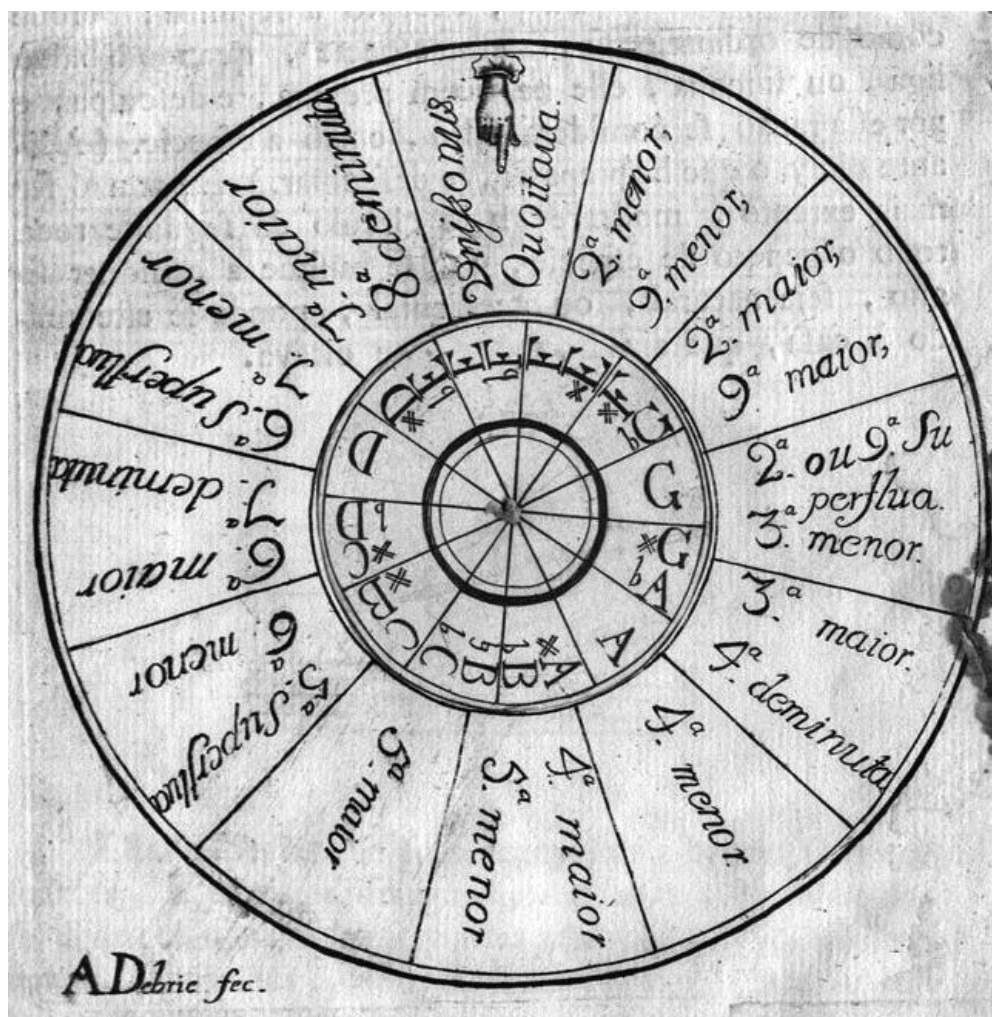 Unissonus,
Ouoitaua.
2ª menor,
9ª menor,
2ª maior,
9ª maior,
2ª. ou 9ª. Su
perflua.
3ª. menor.
3ª. maior.
4ª. deminuta
4ª. menor.
4ª. maior
5ª. menor
5ª maior
5ª. Superflua
6ª menor
6ª. maior
7ª. deminuta
6ª. Superflua
7ª. menor
7ª. maior
8ª deminuta
bG
G
※G
bA
A
※A
bB
♮B
bC
C
※B
※C
bD
D
※D
A Debrie fec.